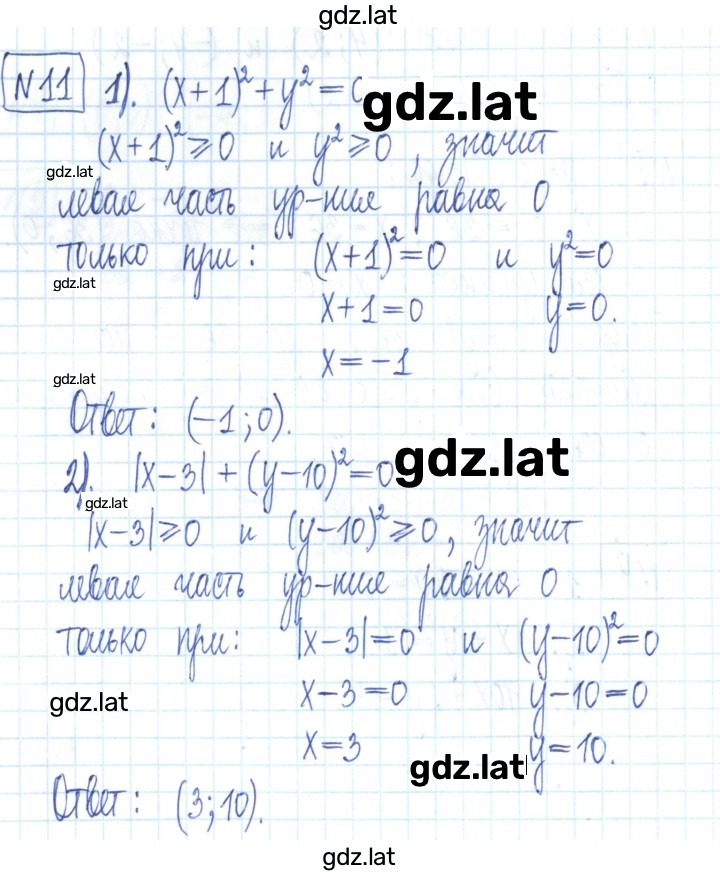 gdz.lat
№11 1). (x+1)²+y²=0 gdz.lat
(x+1)²⩾0 и y²⩾0, значит
gdz.lat
левая часть ур-ния равна 0
только при: (x+1)²=0 и y²=0
gdz.lat
x+1=0 y=0.
x=-1
gdz.lat
Ответ: (-1;0).
2). |x-3|+(y-10)²=0 gdz.lat
gdz.lat
|x-3|⩾0 и (y-10)²⩾0, значит
левая часть ур-ния равна 0
только при: |x-3|=0 и (y-10)²=0
gdz.lat x-3=0 y-10=0
x=3 y=10.
gdz.lat
Ответ: (3;10).
gdz.lat